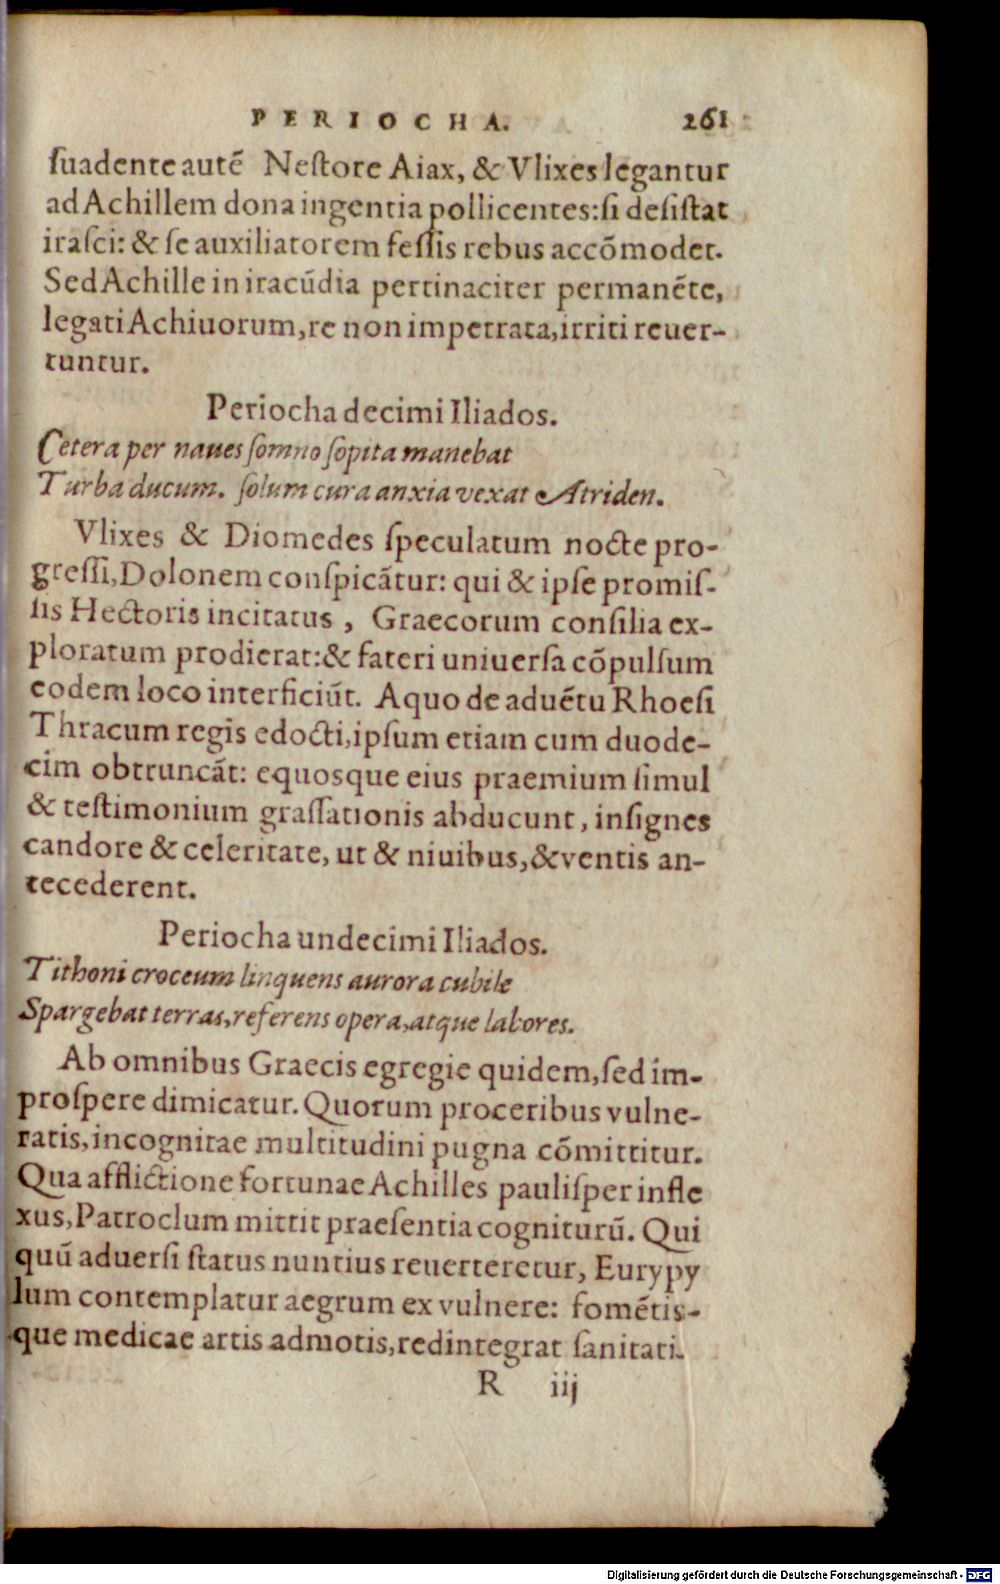 PERIOCHA. 261
ſuadente autẽ Neſtore Aiax, & Vlixes legantur
ad Achillem dona ingentia pollicentes: ſi deſiſtat
iraſci: & ſe auxiliatorem feſſis rebus accõmodet.
Sed Achille in iracũdia pertinaciter permanẽte,
legati Achiuorum, re non impetrata, irriti reuer-
tuntur.
Periocha decimi Iliados.
Cetera per naues ſomno ſopita manebat
Turba ducum. ſolum cura anxia vexat Atriden.
Vlixes & Diomedes ſpeculatum nocte pro-
greſſi, Dolonem conſpicãtur: qui & ipſe promiſ-
ſis Hectoris incitatus, Graecorum conſilia ex-
ploratum prodierat: & fateri uniuerſa cõpulſum
eodem loco interficiũt. A quo de aduẽtu Rhoeſi
Thracum regis edocti, ipſum etiam cum duode-
cim obtruncãt: equosque eius praemium ſimul
& teſtimonium graſſationis abducunt, inſignes
candore & celeritate, ut & niuibus, & ventis an-
tecederent.
Periocha undecimi Iliados.
Tithoni croceum linquens aurora cubile
Spargebat terras, referens opera, atque labores.
Ab omnibus Graecis egregie quidem, ſed im-
proſpere dimicatur. Quorum proceribus vulne-
ratis, incognitae multitudini pugna cõmittitur.
Qua afflictione fortunae Achilles pauliſper infle
xus, Patroclum mittit praeſentia cogniturũ. Qui
quũ aduerſi ſtatus nuntius reuerteretur, Eurypy
lum contemplatur aegrum ex vulnere: fomẽtis-
que medicae artis admotis, redintegrat ſanitati.
R iij
Digitalisierung gefördert durch die Deutsche Forschungsgemeinschaft - DFG